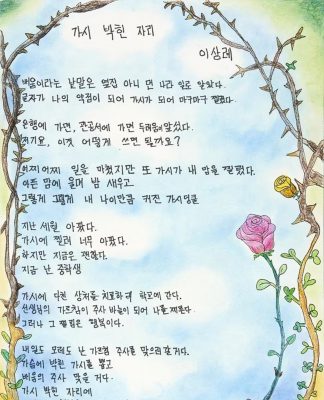 가시 박힌 자리
이상례
배움이라는 낱말은 옆집 아니 먼 나라 일로 알았다.
글자가 나의 약점이 되어 가시가 되어 마구마구 찔렀다.
은행에 가면, 관공서에 가면 두려움이 앞섰다.
저기요, 이것 어떻게 쓰면 될까요?
어찌어찌 일을 마쳤지만 또 가시가 내 맘을 찔렀다.
아픈 맘에 울며 밤 새우고
그렇게 그렇게 내 나이만큼 커진 가시덩쿨
지난 세월 아팠다.
가시에 찔려 너무 아팠다.
하지만 지금은 괜찮다.
지금 난 중학생
가시에 다친 상처를 치료하러 학교에 간다.
선생님의 가르침이 주사 바늘이 되어 나를 찌른다.
그러나 그 찔림은 행복이다.
내일도 모레도 난 가르침 주사를 맞으러 갈거다.
가슴에 박힌 가시를 뽑고
배움의 주사 맞을 거다.
가시 박힌 자리에